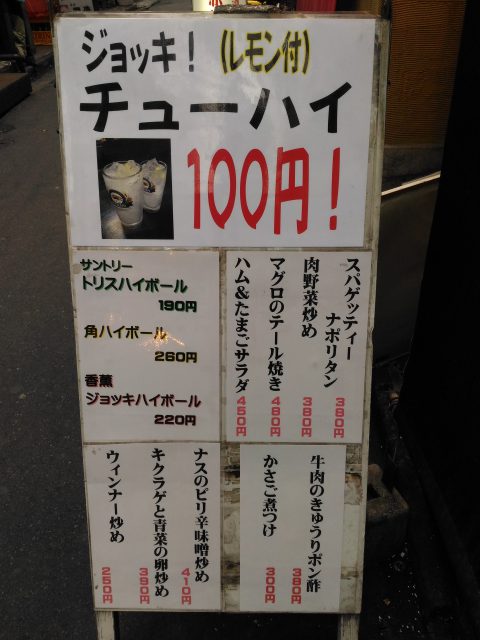 ジョッキ! (レモン付)
チューハイ
100円!
サントリー
トリスハイボール
190円
角ハイボール
260円
香薫
ジョッキハイボール
220円
スパゲッティー
ナポリタン 380円
肉野菜炒め 380円
マグロのテール焼き 480円
ハム&たまごサラダ 450円
ナスのピリ辛味噌炒め 410円
キクラゲと青菜の卵炒め 390円
ウィンナー炒め 250円
牛肉のきゅうりポン酢 380円
かさご煮つけ 300円